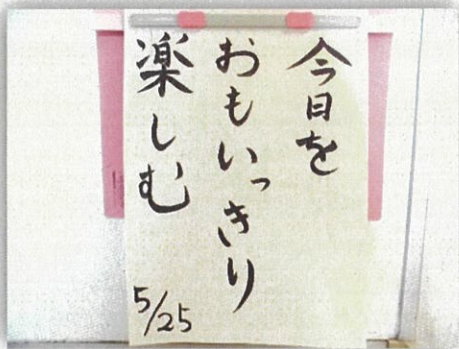 今日を
おもいっきり
楽しむ
5/25